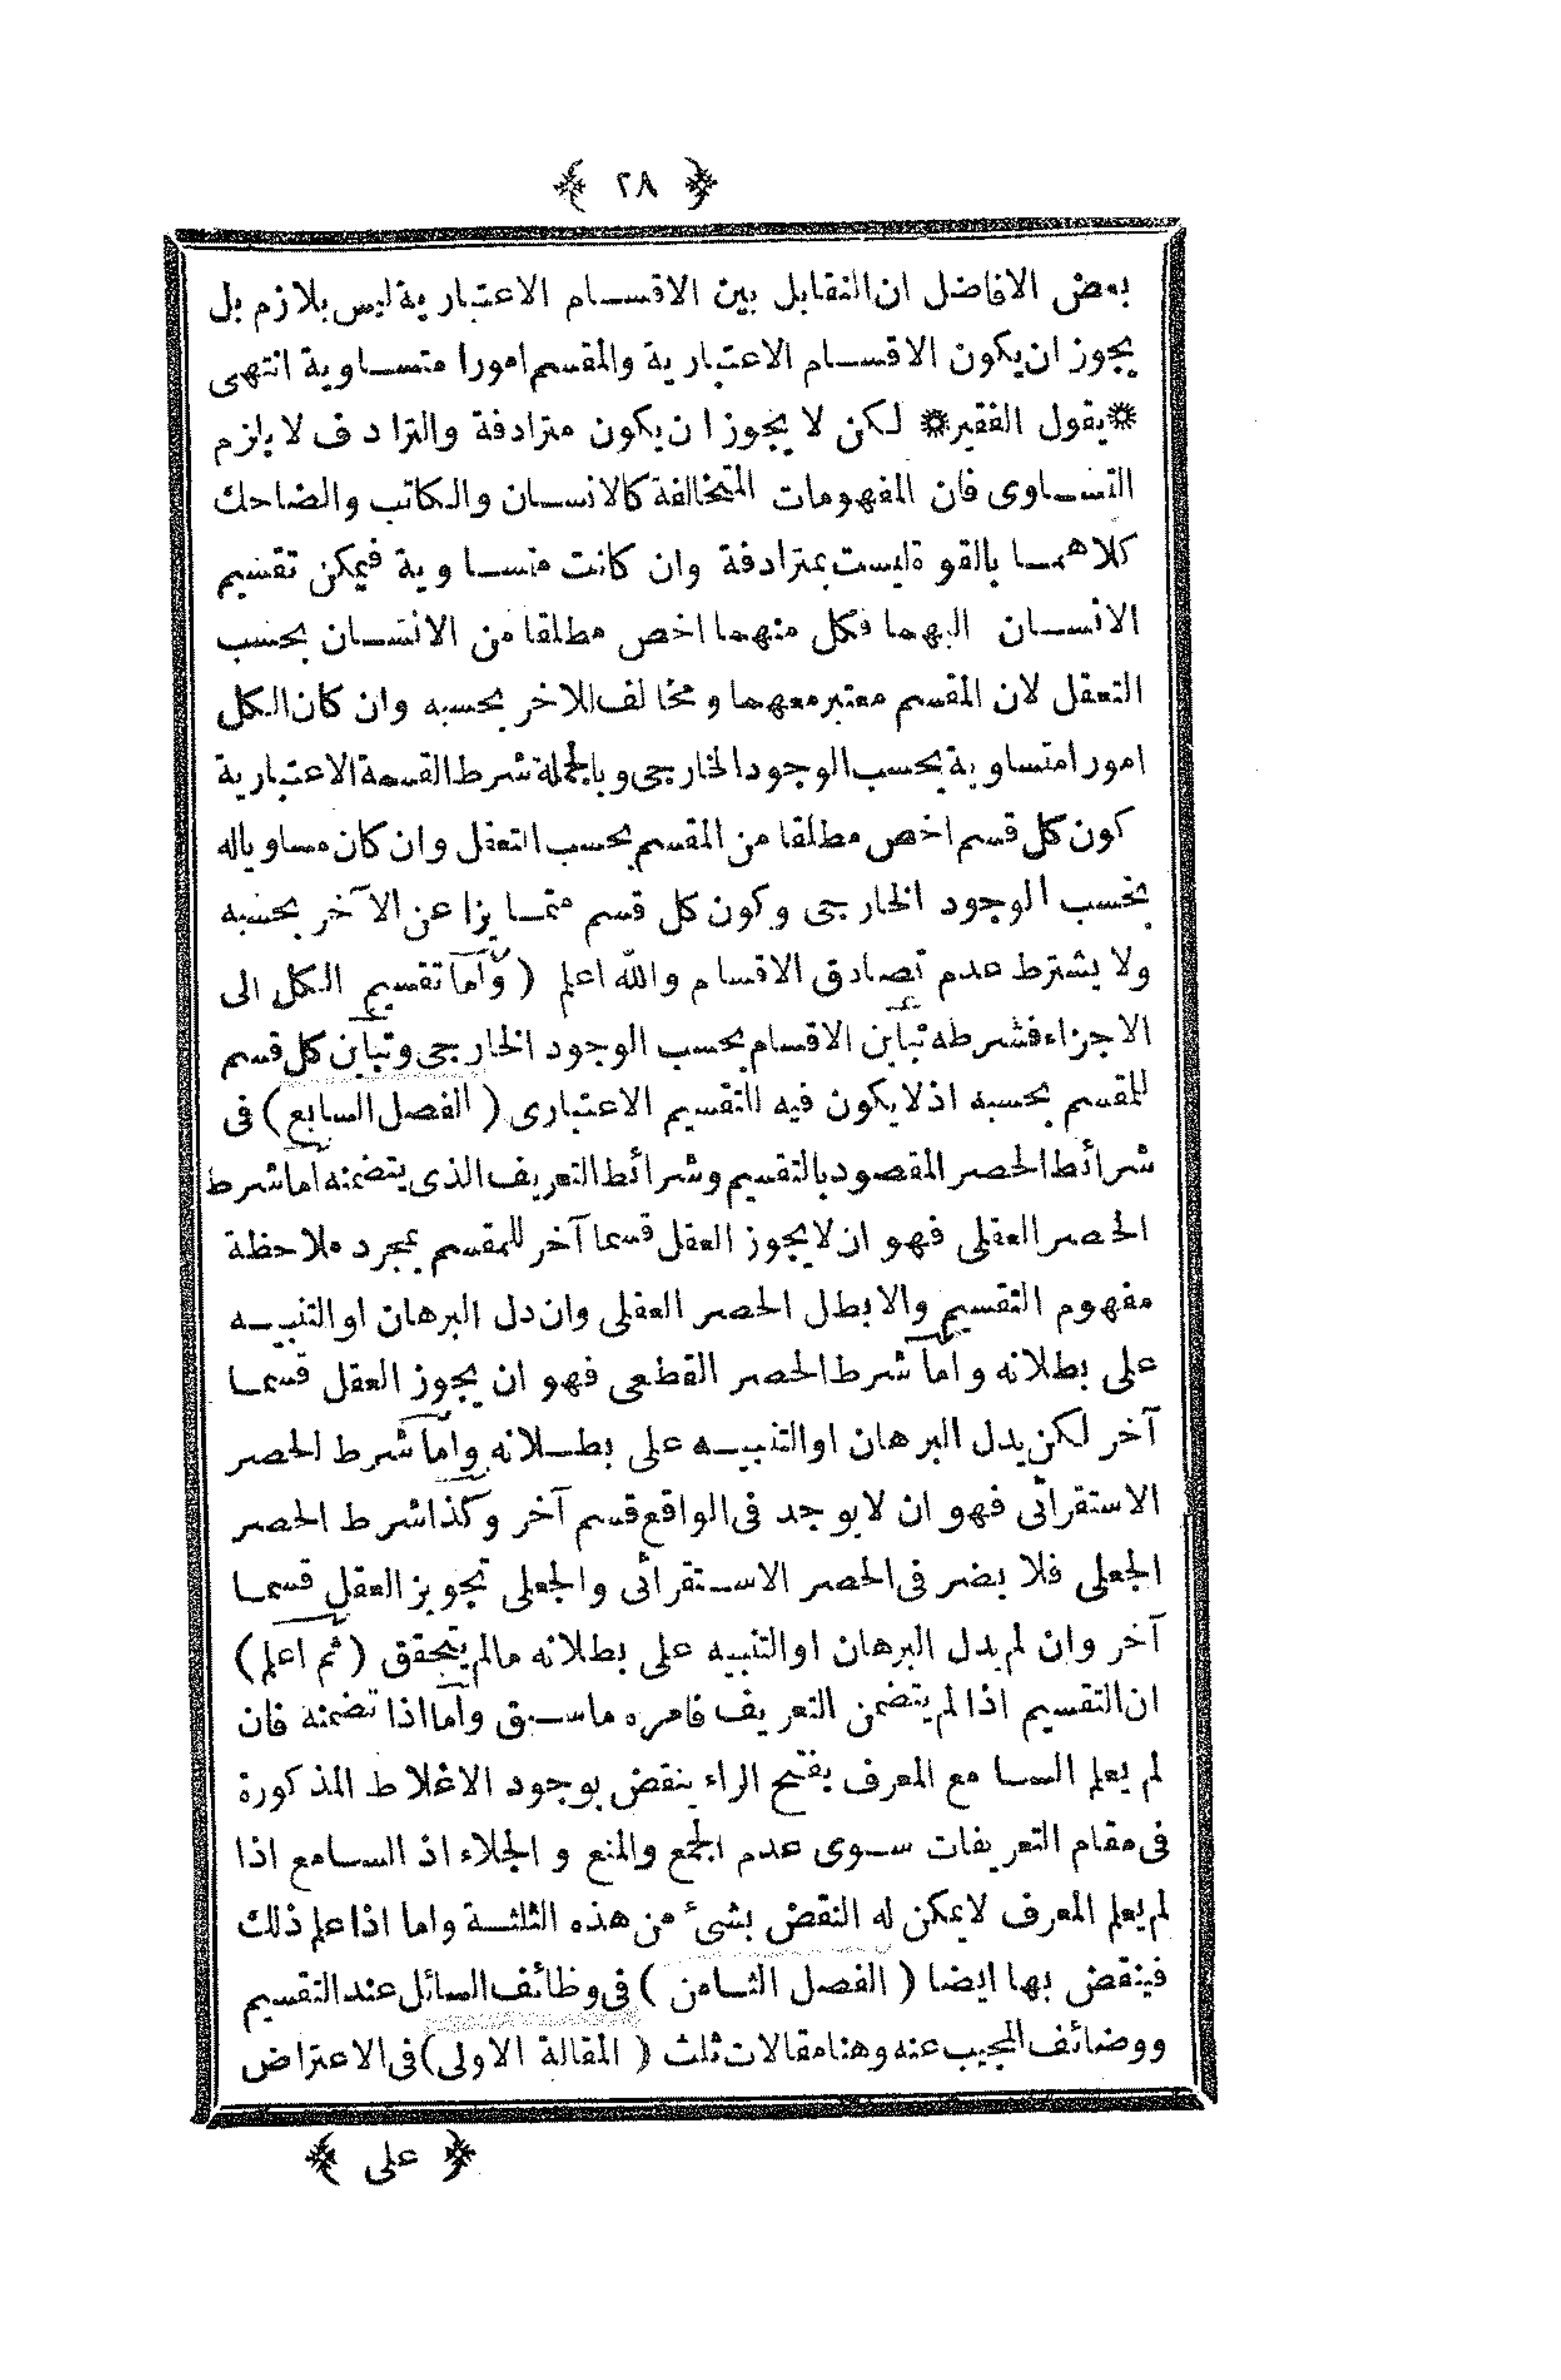 ﴿ ٢٨ ﴾
بعض الافاضل ان التقابل بين الاقسام الاعتبارية ليس بلازم بل
يجوز ان يكون الاقسام الاعتبارية والمقسم امورا متساوية انتهى
❊ يقول الفقير ❊ لكن لا يجوز ان يكون مترادفة والترادف لا يلزم
التساوى فان المفهومات المتخالفة كالانسان والكاتب والضاحك
كلاهما بالقوة ليست بمترادفة وان كانت متساوية فيمكن تقسيم
الانسان اليهما فكل منهما اخص مطلقا من الانسان بحسب
التعقل لان المقسم معتبر معهما ومخالف للاخر بحسبه وان كان الكل
امورا متساوية بحسب الوجود الخارجى وبالجملة شرط القسمة الاعتبارية
كون كل قسم اخص مطلقا من المقسم بحسب التعقل وان كان مساويا له
بحسب الوجود الخارجى وكون كل قسم متمايزا عن الآخر بحسبه
ولا يشترط عدم تصادق الاقسام والله اعلم ( واما تقسيم الكل الى
الاجزاء فشرطه تباين الاقسام بحسب الوجود الخارجى وتباين كل قسم
للمقسم بحسبه اذ لا يكون فيه التقسيم الاعتبارى ( الفصل السابع ) فى
شرائط الحصر المقصود بالتقسيم وشرائط التعريف الذى يتضمنه اما شرط
الحصر العقلى فهو ان لا يجوز العقل قسما آخر للمقسم بمجرد ملاحظة
مفهوم التقسيم والا بطل الحصر العقلى وان دل البرهان او التنبيه
على بطلانه واما شرط الحصر القطعى فهو ان يجوز العقل قسما
آخر لكن يدل البرهان او التنبيه على بطلانه واما شرط الحصر
الاستقرائى فهو ان لا يوجد فى الواقع قسم آخر وكذا شرط الحصر
الجعلى فلا يضر فى الحصر الاستقرائى والجعلى تجويز العقل قسما
آخر وان لم يدل البرهان او التنبيه على بطلانه مالم يتحقق ( ثم اعلم )
ان التقسيم اذا لم يتضمن التعريف فامره ماسبق واما اذا تضمنه فان
لم يعلم السامع المعرف بفتح الراء ينقض بوجود الاغلاط المذكورة
فى مقام التعريفات سوى عدم الجمع والمنع والجلاء اذ السامع اذا
لم يعلم المعرف لا يمكن له النقض بشئ من هذه الثلثة واما اذا علم ذلك
فينقض بها ايضا ( الفصل الثامن ) فى وظائف السائل عند التقسيم
ووضائف المجيب عنه وهنا مقالات ثلث ( المقالة الاولى ) فى الاعتراض
﴿ على ﴾